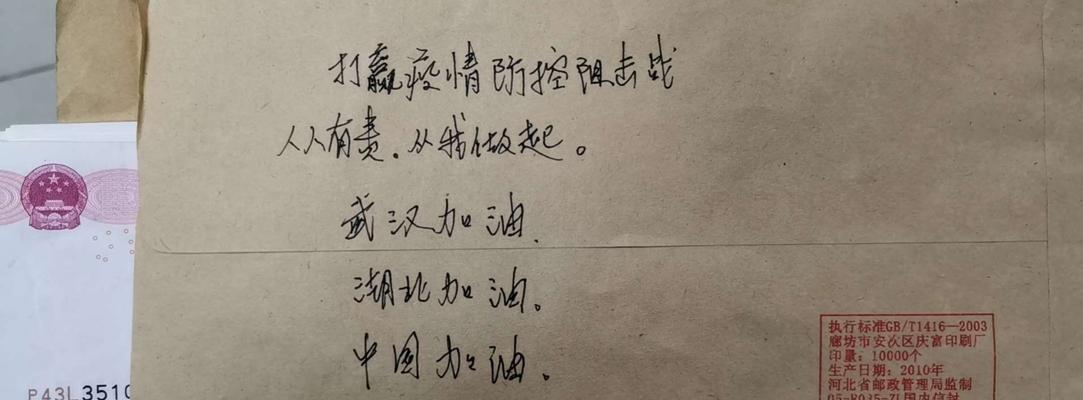 打赢疫情防控阻击战
人人有责.从我做起。
武汉加油.
湖北加油。
中国加油。
执行标准GB/T1416—2003
廊坊市安次区庆富印刷厂
印量：10000个
生产日期：2010年
河北省邮政管理局监制
05-R035-ZL国内信封
P43L3510